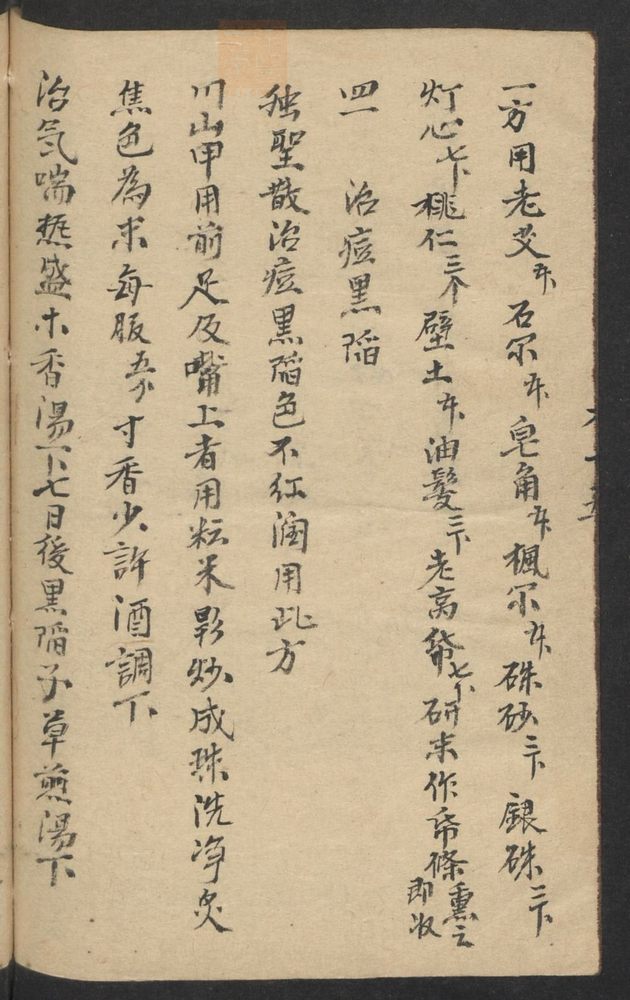 一方用老艾 石 皂角 楓 硃砂三下 銀硃三下
灯心七下 桃仁三个 壁土 油髮三下 老高 七下 研末作帋條熏之即收
四一 治痘黑陷
独聖散治痘黑陷色不红润用此方
川山甲用前足及嘴上者用粘米 炒成珠洗净炙
焦色為末每服 分寸香少許酒調下
治氣喘 盛木香湯下七日後黑陷 草煎湯下